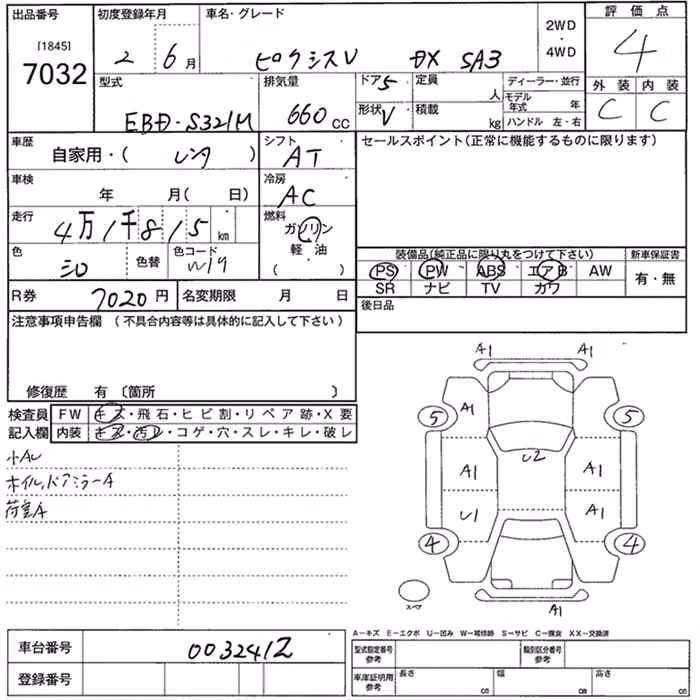 出品番号
[1845]
7032
初度登録年月
2 6月
車名・グレード
ピクシスV DX SA3
2WD
・
4WD
評価点
4
外装 内装
C C
型式
EBD-S321M
排気量
660 CC
ドア 5
形状 V
定員 人
積載 kg
ディーラー・並行
モデル年式 年
ハンドル 左・右
車歴
自家用・( レンタ )
シフト
AT
車検
年 月( 日)
冷房
AC
走行
4万1千815 km
燃料
ガソリン
軽・油
( )
色
シロ
色替
色コード
W19
R券
7020円
名変期限 月 日
セールスポイント(正常に機能するものに限ります)
装備品(純正品に限り丸をつけて下さい)
PS PW ABS エアB AW
SR ナビ TV カワ
新車保証書
有・無
後日品
注意事項申告欄 (不具合内容等は具体的に記入して下さい)
修復歴 有 〔箇所 〕
検査員
記入欄
FW キズ・飛石・ヒビ割・リペア跡・X要
内装 キズ・汚レ・コゲ・穴・スレ・キレ・破レ
小AU
ホイル、ドアミラーA
荷室A
A1 A1
5 A1 5
U2
A1 A1
U1 A1
4 4
スペア
A1
A-キズ E-エクボ U-凹み W-補修跡 S-サビ C-腐食 XX-交換済
車台番号
0032412
登録番号
型式指定番号
参考
類別区分番号
参考
車庫証明用
参考
長さ cm
幅 cm
高さ cm